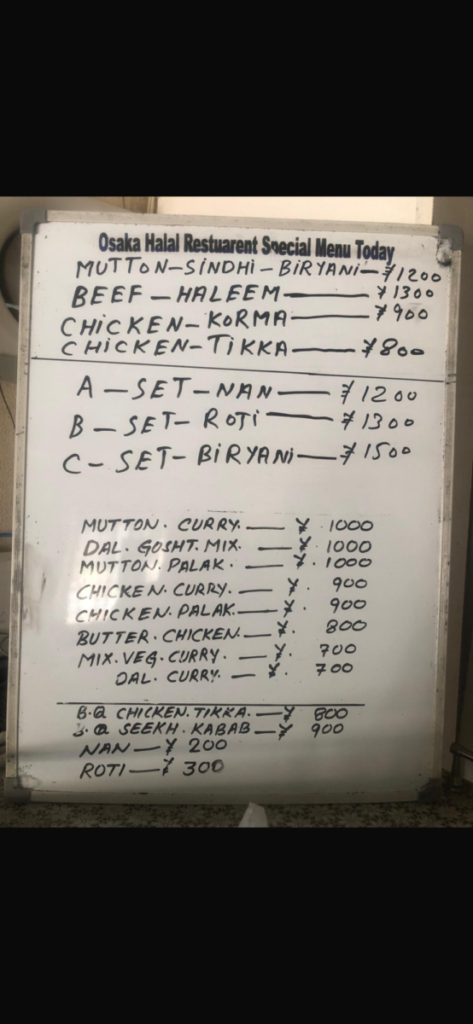 Osaka Halal Restuarent Special Menu Today
MUTTON-SINDHI-BIRYANI-¥1200
BEEF-HALEEM-¥1300
CHICKEN-KORMA-¥900
CHICKEN-TIKKA-¥800
A-SET-NAN-¥1200
B-SET-ROTI-¥1300
C-SET-BIRYANI-¥1500
MUTTON. CURRY.-¥ 1000
DAL. GOSHT. MIX.-¥. 1000
MUTTON. PALAK.-¥. 1000
CHICKEN. CURRY.-¥. 900
CHICKEN. PALAK.-¥. 900
BUTTER. CHICKEN.-¥. 800
MIX. VEG. CURRY.-¥. 700
DAL. CURRY.-¥. 700
B.Q CHICKEN. TIKKA.-¥ 800
B.Q SEEKH. KABAB-¥ 900
NAN-¥ 200
ROTI-¥ 300